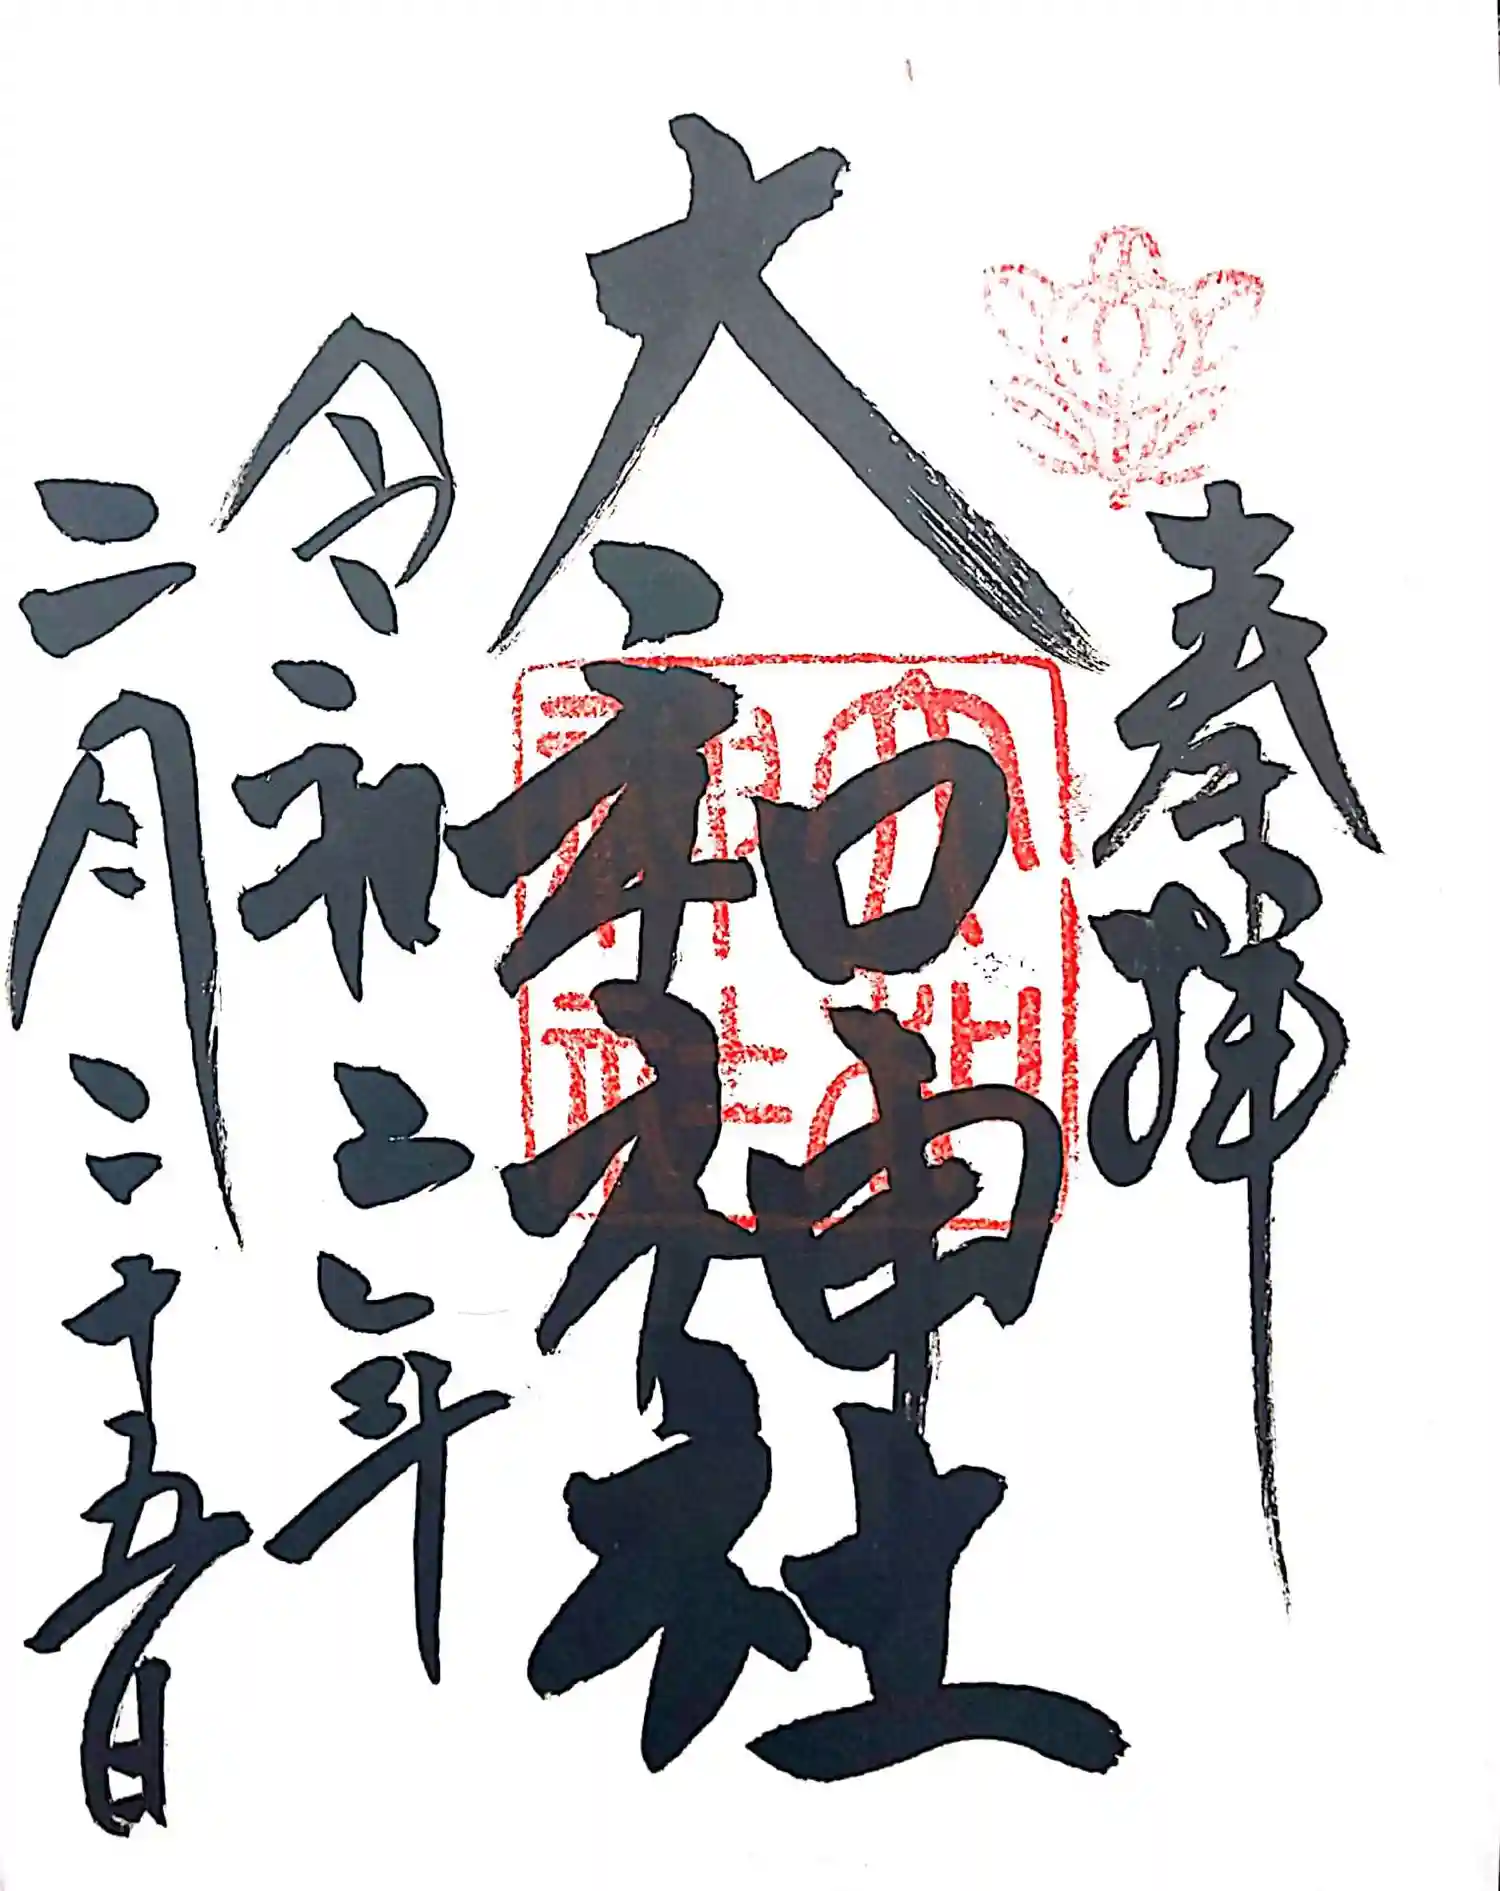 奉拝
大和神社
大和神社
令和六年
二月二十五日